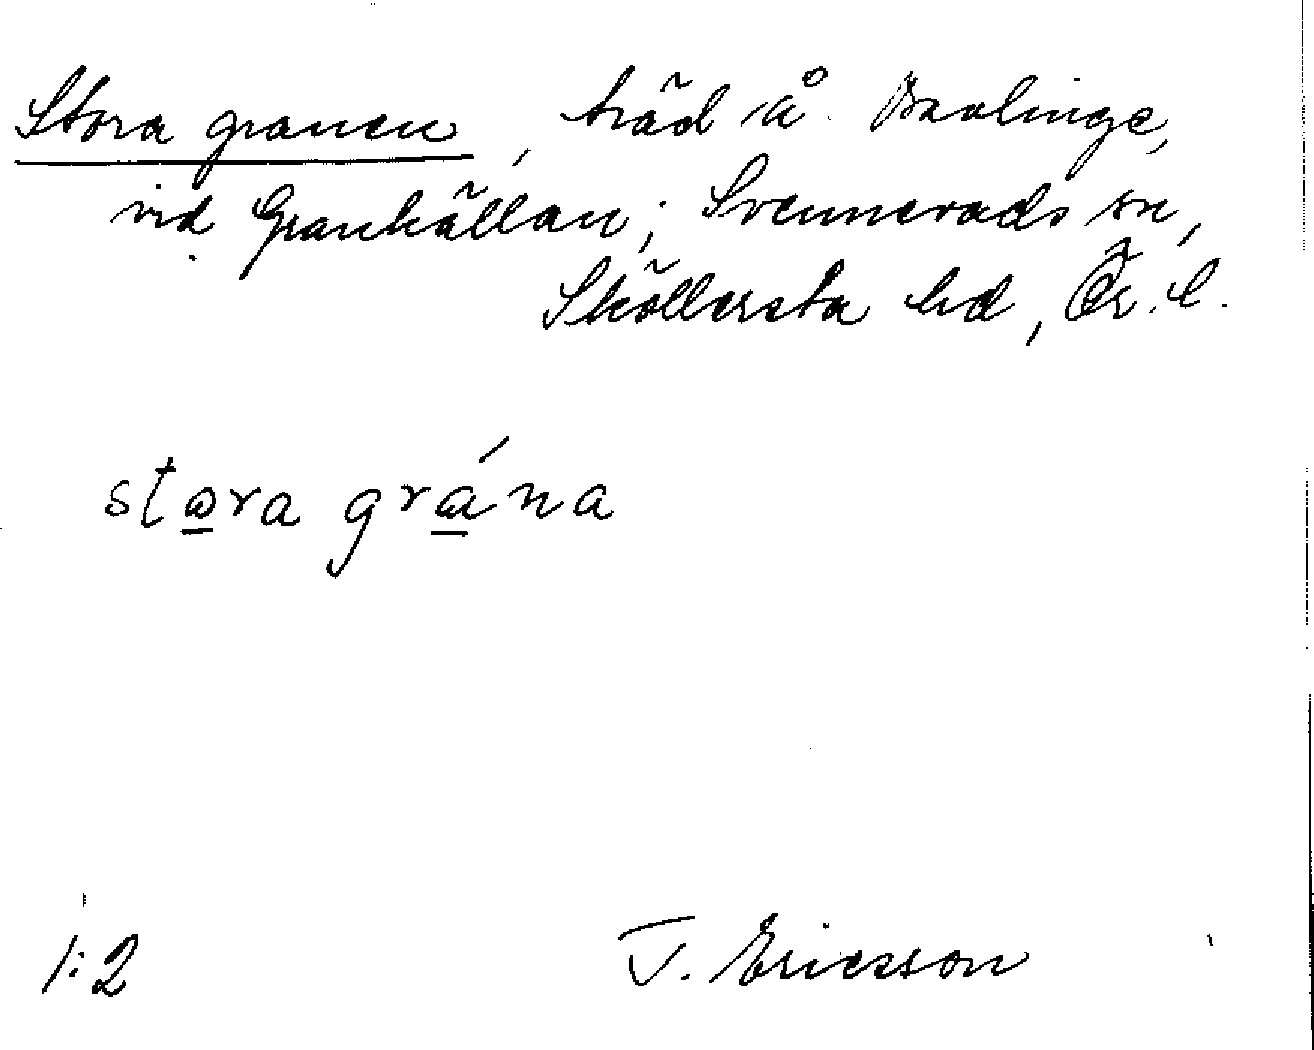 Stora granen, träd å Bralinge,
vid Grankällan; Svennevads sn,
Sköllersta hd, Ör. l.
stora grána
1:2 T. Ericsson